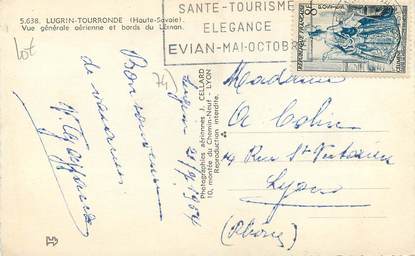 5.638. LUGRIN-TOURRONDE (Haute-Savoie)
Vue générale aérienne et bords du Léman.
SANTE-TOURISME
ELEGANCE
EVIAN-MAI-OCTOBRE
Photographies aériennes J. CELLARD
10, montée du Chemin-Neuf - LYON
Reproduction interdite.
Bon souvenir
de vacances
Lugrin
Madame
A. Colin
14 Rue St Victorien
Lyon
(Rhône)